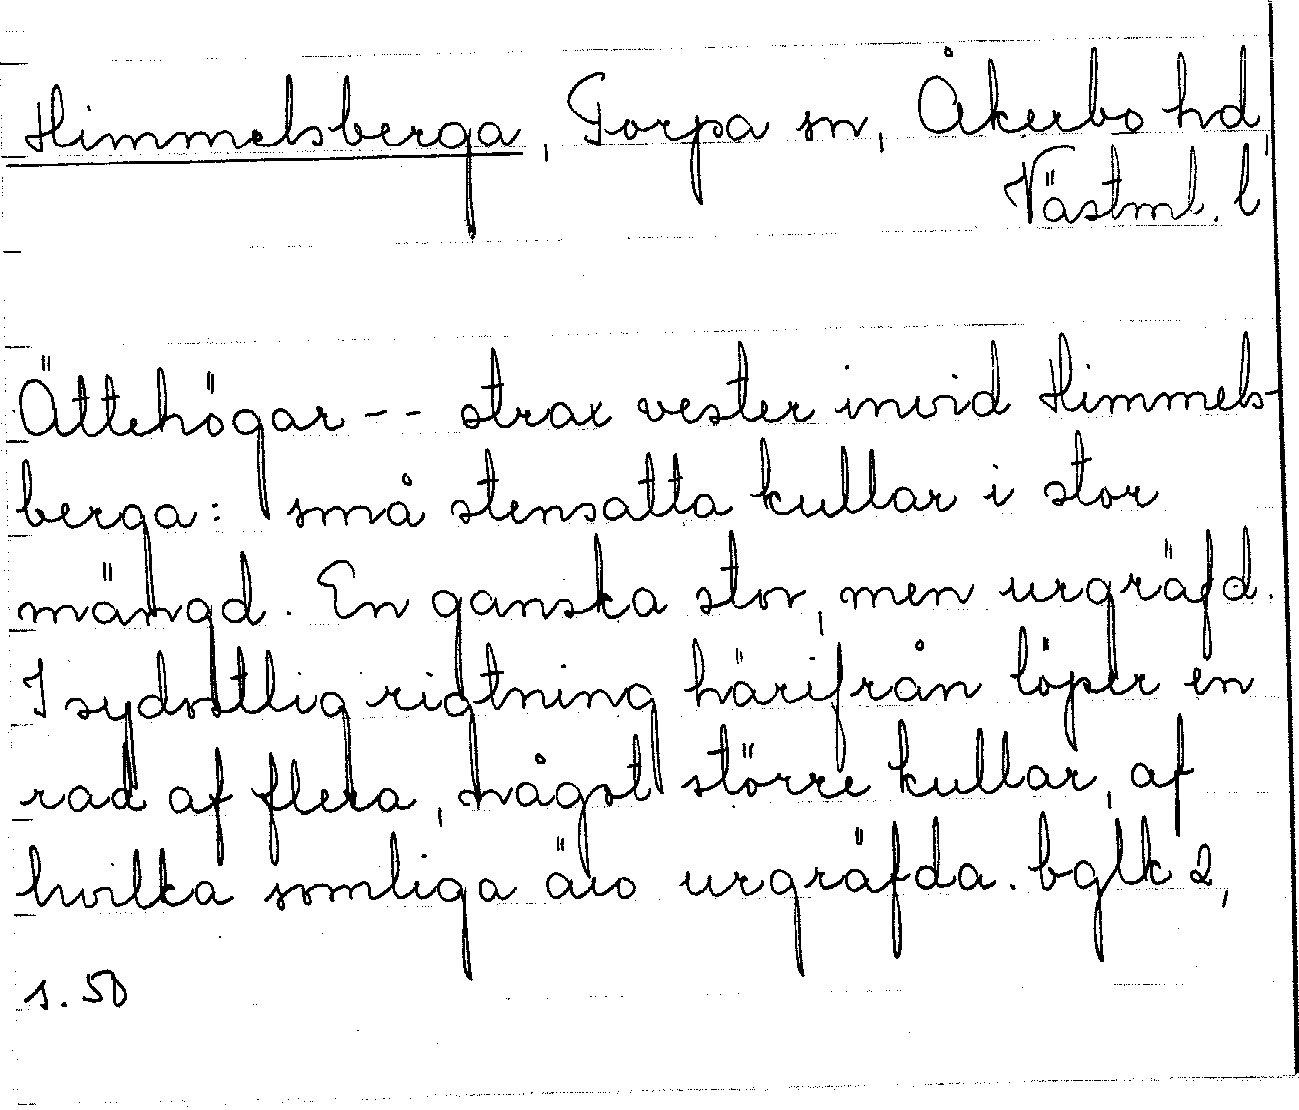 Himmelsberga, Torpa sn, Åkerbo hd,
Västml. l
Ättehögar -- strax vester invid Himmels-
berga: små stensatta kullar i stor
mängd. En ganska stor, men urgräfd.
I sydostlig rigtning härifrån löper en
rad af flera, något större kullar, af
hvilka somliga äro urgräfda. bglk 2,
s. 50